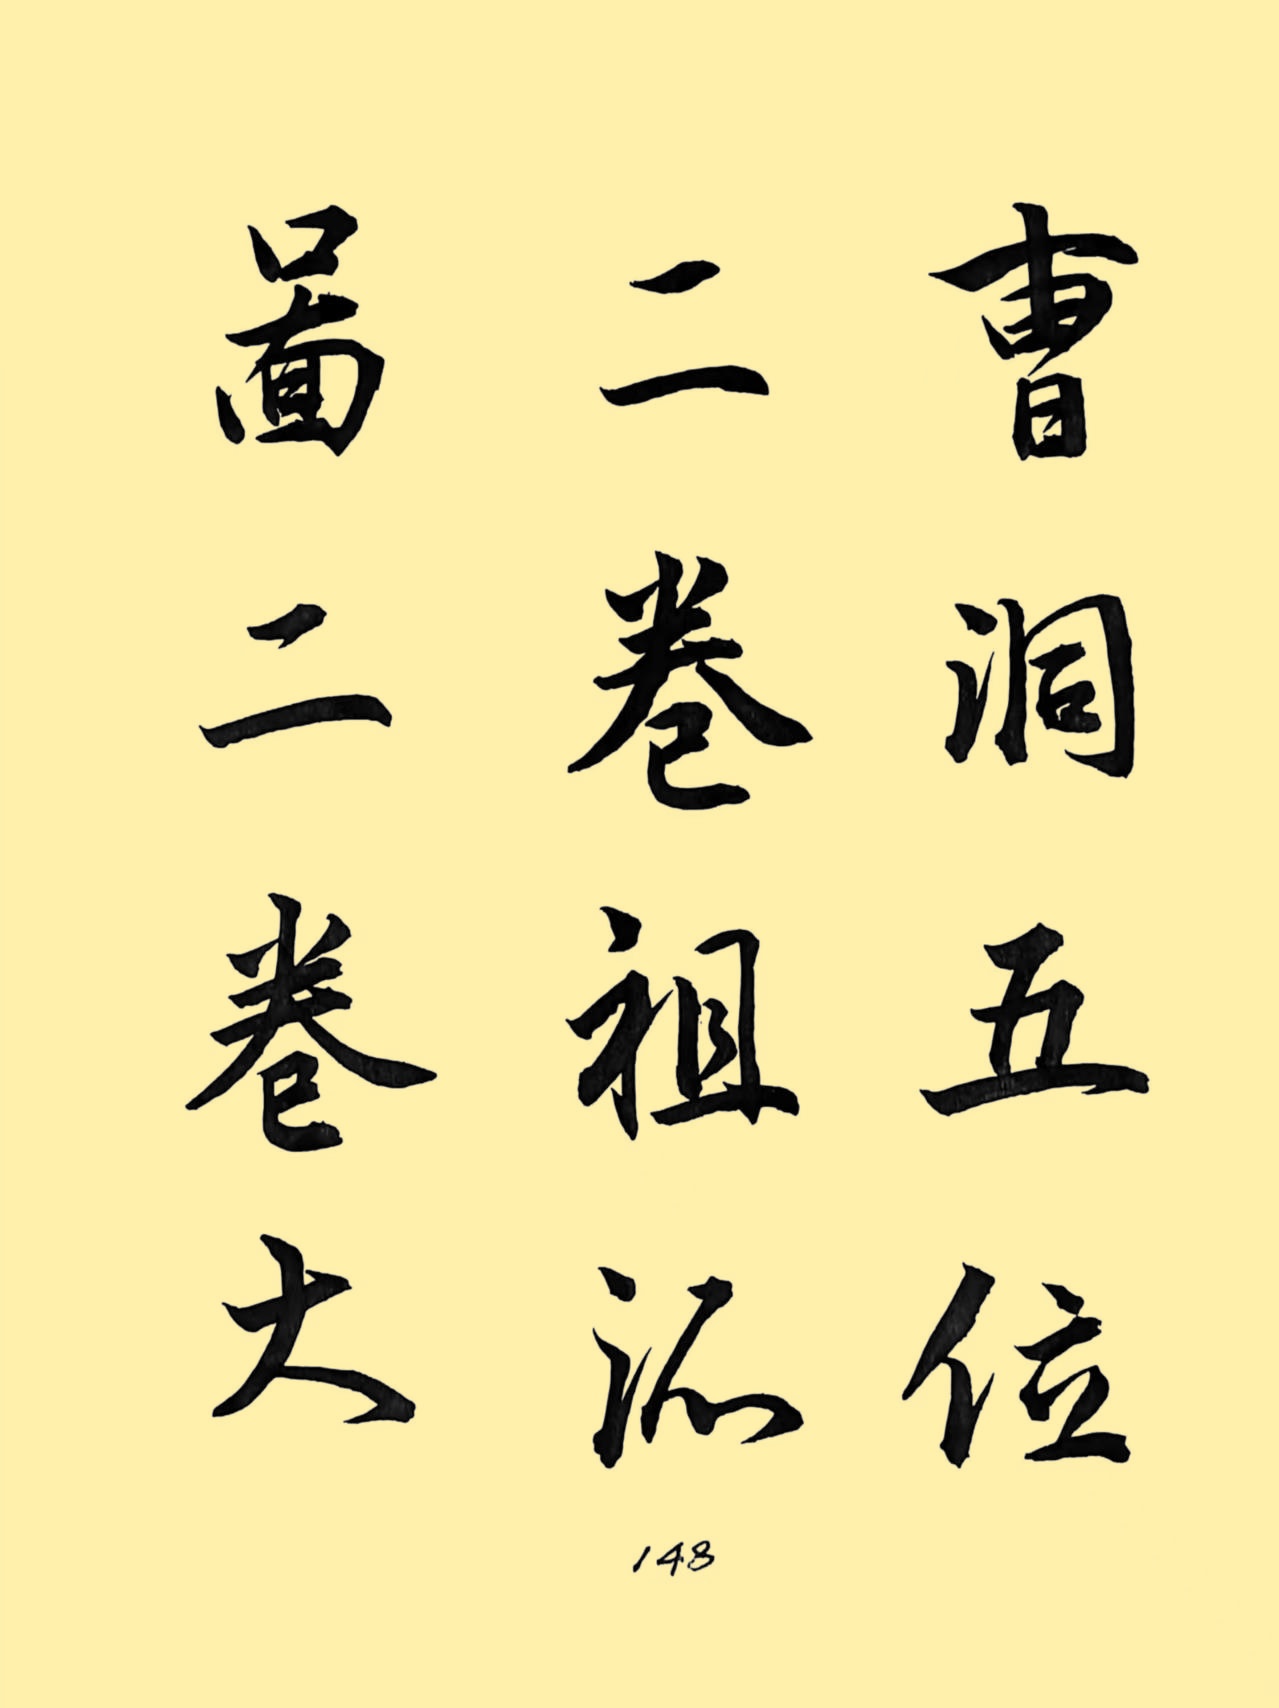 曹洞五位
二卷祖派
圖二卷大
148